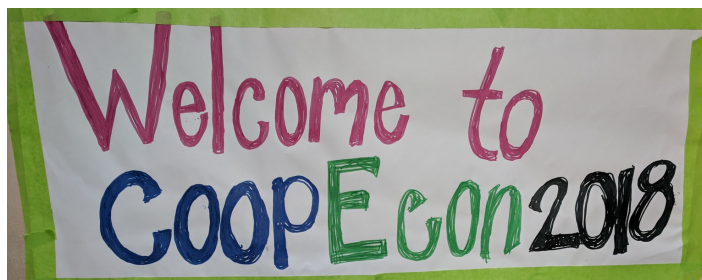 Welcome to
CoopEcon2018